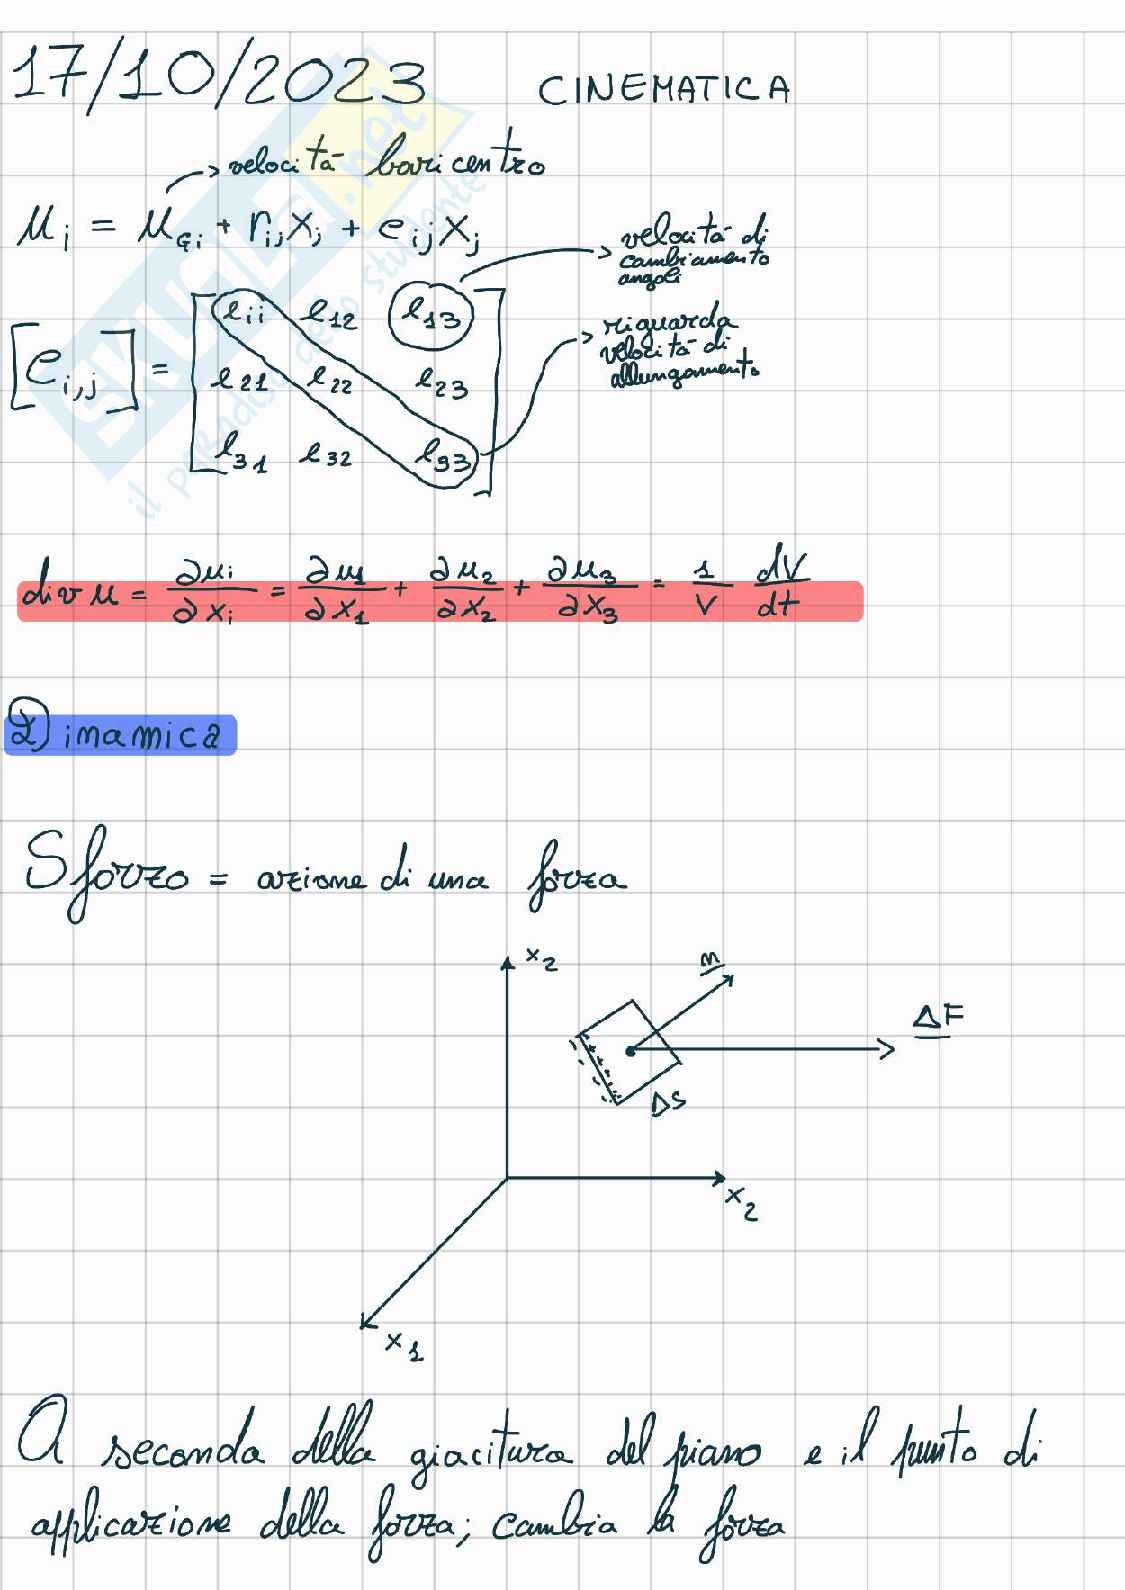 17/10/2023 CINEMATICA
→ velocità baricentro
u_i = u_Gi + r_ij x_j + e_ij x_j
→ velocità di
cambiamento
angoli
[e_i,j] =
e_ii e_12 e_13
e_21 e_22 e_23
e_31 e_32 e_33
→ riguarda
velocità di
allungamento
div u = ∂u_i/∂x_i = ∂u_1/∂x_1 + ∂u_2/∂x_2 + ∂u_3/∂x_3 = 1/V dV/dt
Dinamica
Sforzo = azione di una forza
x_2
n
ΔF
ΔS
x_2
x_1
A seconda della giacitura del piano e il punto di
applicazione della forza; cambia la forza
SKUOLA.net
il paradiso dello studente